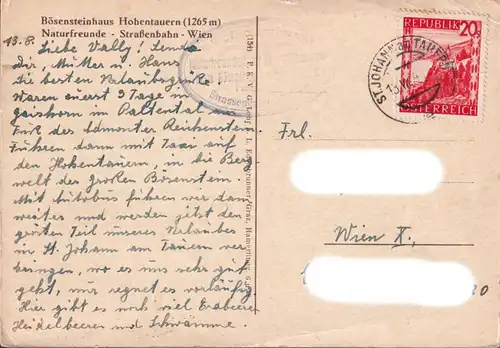 Bösensteinhaus Hohentauern (1265 m)
Naturfreunde - Straßenbahn - Wien
13.8.
Liebe Vally! Sende
Dir, Mutter u. Hans
die besten Urlaubsgrüße
Waren zuerst 3 Tage in
Gaishorn im Paltental am
Fuße des Admonter Reichenstein.
Fuhren dann mit Taxi auf
den Hohentauern, in die Berg
welt des Großen Bösenstein.
Mit Autobus führen wir dann
weiter und werden jetzt den
größten Teil unseres Urlaubes
in St. Johann am Tauern ver
bringen, wo es uns sehr gut
geht, nur regnet es vorläufig.
Hier gibt es noch viel Erdbeeren
Heidelbeeren und Schwämme.
Straßen
REPUBLIK
20
ÖSTERREICH
ST. JOHANN
TAUERN
Frl.
Wien X.,